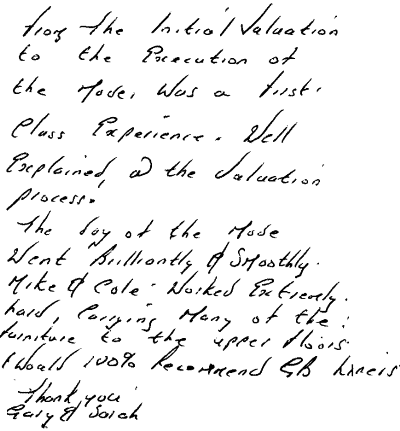 from the Initial Valuation
to the Execution of
the Move, Was a first.
Class Experience. Well
Explained, @ the Valuation
process.
The day of the Move
Went Brilliantly & Smoothly.
Mike & Cole. Worked Extremely.
hard, Carrying Many of the
furniture to the upper floors
I Would 100% Recommend GB Liners
Thank you
Gary & Sarah